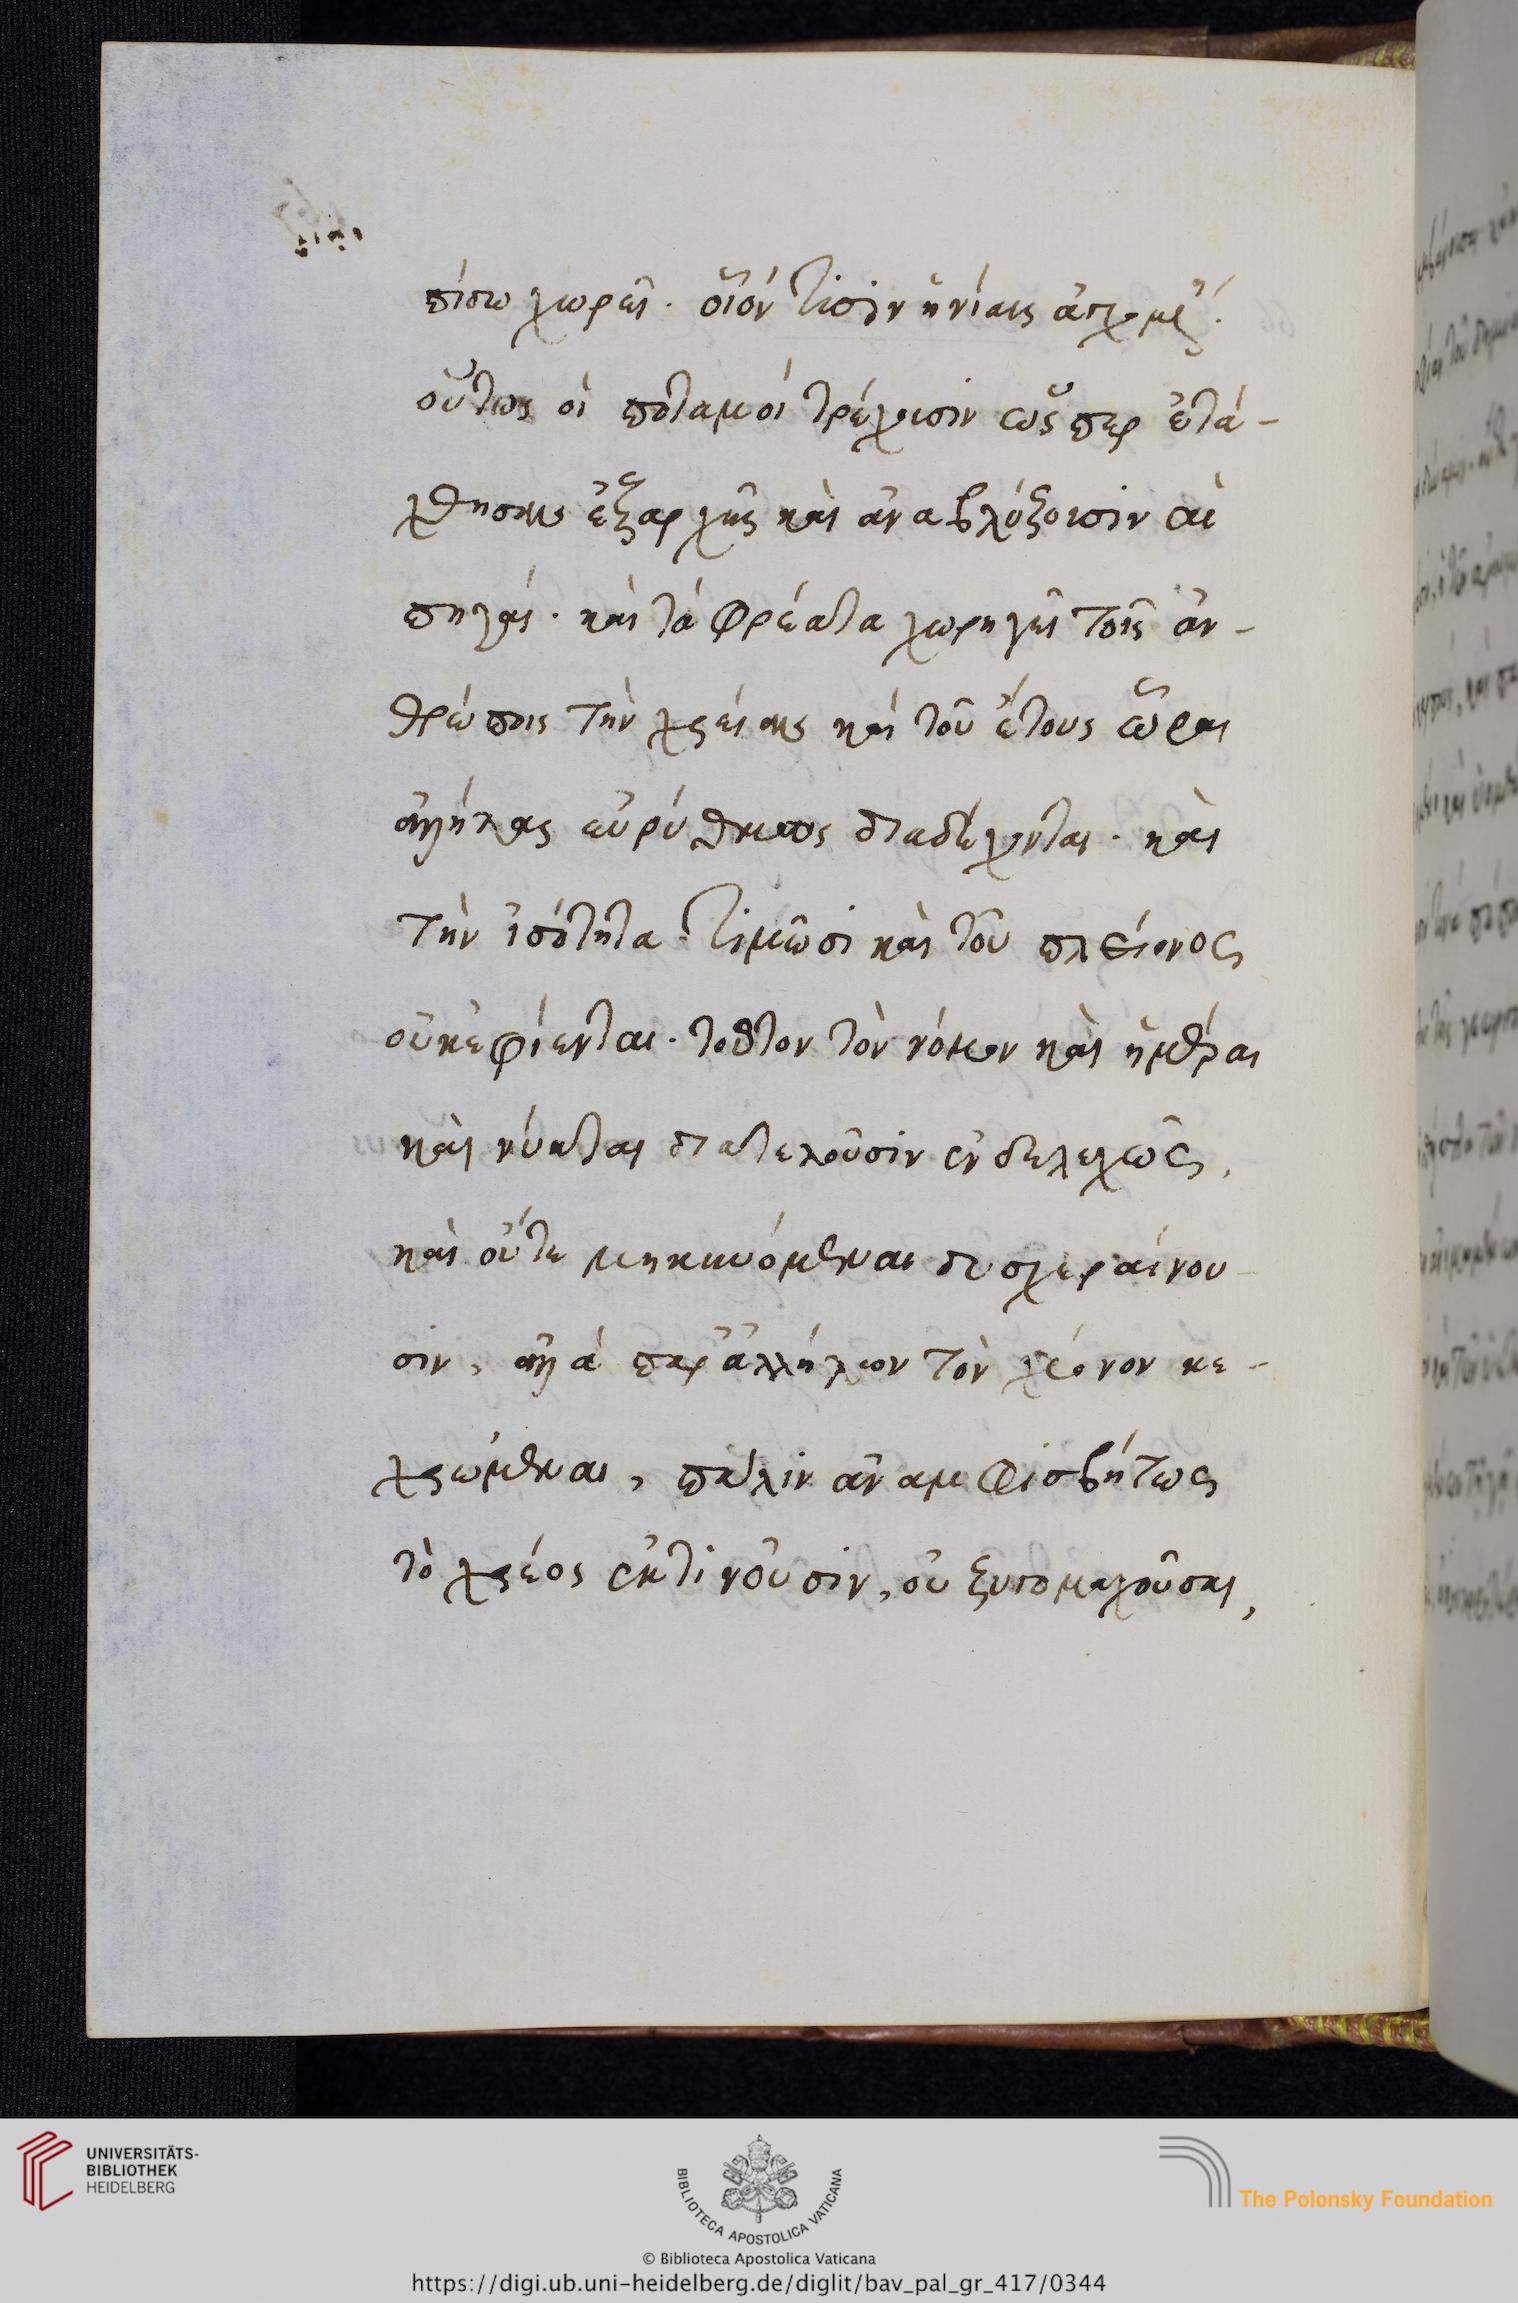 πίσω χωρεῖ. οἷόν τισιν ἡνίαις ἀγχομένη.
οὕτως οἱ ποταμοὶ τρέχουσιν ὥσπερ ἐτά-
χθησαν ἐξαρχῆς καὶ ἀναβλύζουσιν αἱ
πηγαί. καὶ τὰ φρέατα χωρηγεῖ τοῖς ἀν-
θρώποις τὴν χρείαν καὶ τοῦ ἔτους ὧραι
ἀλλήλας εὐρύθμως διαδέχονται. καὶ
τὴν ἰσότητα τιμῶσι καὶ τοῦ πλείονος
οὐκεφίενται. τοῦτον τὸν νόμον καὶ ἡμέραι
καὶ νύκται διατελοῦσιν ἐνδελεχῶς,
καὶ οὔτε μηκυνόμεναι δυσχεραίνου
σιν, ἀλλὰ παρἀλλήλων τὸν χρόνον κε-
χρωμέναι, πάλιν ἀναμφισβήτως
τὸ χρέος ἐκτινοῦσιν, οὐ ζυγομαχοῦσαι,
UNIVERSITÄTS-
BIBLIOTHEK
HEIDELBERG
BIBLIOTECA APOSTOLICA VATICANA
The Polonsky Foundation
© Biblioteca Apostolica Vaticana
https://digi.ub.uni-heidelberg.de/diglit/bav_pal_gr_417/0344